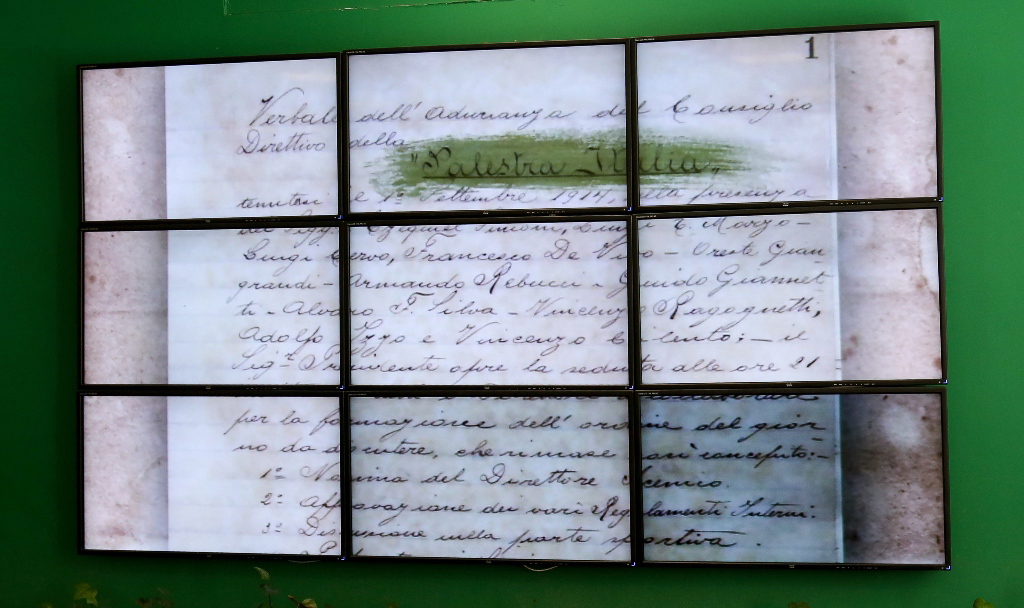 1
Verbale dell' adunanza del Consiglio
Direttivo della
"Palestra Italia"
tenutasi e 1º Settembre 1914, alla presenza
dei Sigg. Ezequiel Simoni, Luigi E. Marzo -
Luigi Cervo, Francesco De Vivo - Oreste Gian
grandi - Armando Rebucci - Guido Giannet
ti - Alvaro F. Silva - Vincenzo Ragognetti,
Adolfo Izzo e Vincenzo Cilento; - il
Sigr. Presidente apre la seduta alle ore 21
per la formazione dell' ordine del gior
no da discutere, che rimase così concepito:-
1º Nomina del Direttore Scenico.
2º Approvazione dei vari Regolamenti Interni.
3º Discussione nella parte sportiva.